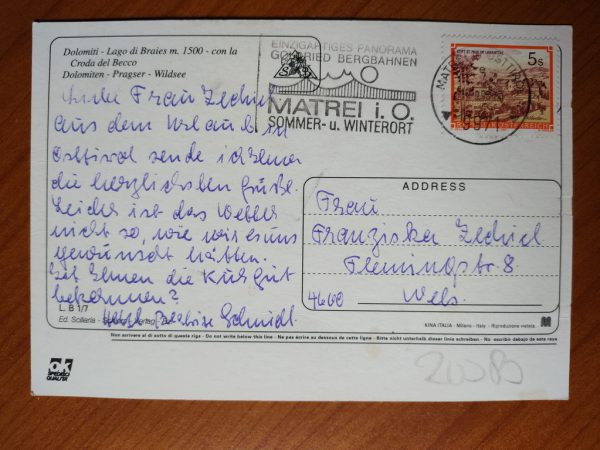 Dolomiti - Lago di Braies m. 1500 - con la
Croda del Becco
Dolomiten - Pragser - Wildsee
EINZIGARTIGES PANORAMA
BERGBAHNEN
MATREI i. O.
SOMMER- u. WINTERORT
5s
9971
Frau
aus dem Urlaub in
Osttirol sende ich Ihnen
die herzlichsten Grüße.
Leider ist das Wetter
nicht so, wie wir es uns
gewünscht hätten.
Ist Ihnen die Kur gut
bekommen?
Schmidt
ADDRESS
Frau
Franziska
Flemingstr. 8
4600 Wels
L. B 1/7
KINA ITALIA - Milano - Italy - Riproduzione vietata
Non scrivere al di sotto di questa riga - Do not write below this line - Ne pas écrire au dessous de cette ligne - Bitte nicht unterhalb dieser linie schreiben - No escribir debajo de esta raya
OK